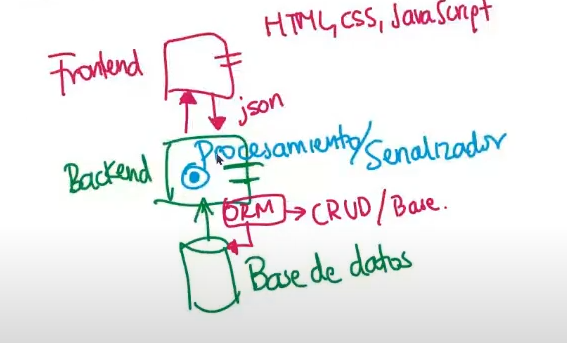 HTML, CSS, JavaScript
Frontend
json
Procesamiento/Serializador
Backend
ORM → CRUD/Base.
Base de datos